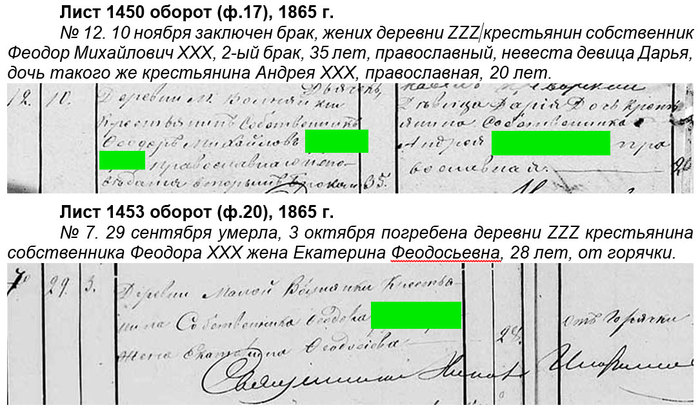 Лист 1450 оборот (ф.17), 1865 г.
№ 12. 10 ноября заключен брак, жених деревни ZZZ/крестьянин собственник
Феодор Михайлович XXX, 2-ый брак, 35 лет, православный, невеста девица Дарья,
дочь такого же крестьянина Андрея XXX, православная, 20 лет.
12. 10. Деревни М.
Крестьянинъ Собственникъ
Ѳеодоръ Михайловъ
православнаго
вторымъ бракомъ 35.
Дѣвица Дарія Дочь Крестья
янина Собственника
Андрея пра
вославная.
Лист 1453 оборот (ф.20), 1865 г.
№ 7. 29 сентября умерла, 3 октября погребена деревни ZZZ крестьянина
собственника Феодора XXX жена Екатерина Феодосьевна, 28 лет, от горячки.
7 29. 3. Деревни Малой Крестья
нина Собственника Ѳеодора
жена Екатерина Ѳеодосіева 28. отъ горячки
Священникъ